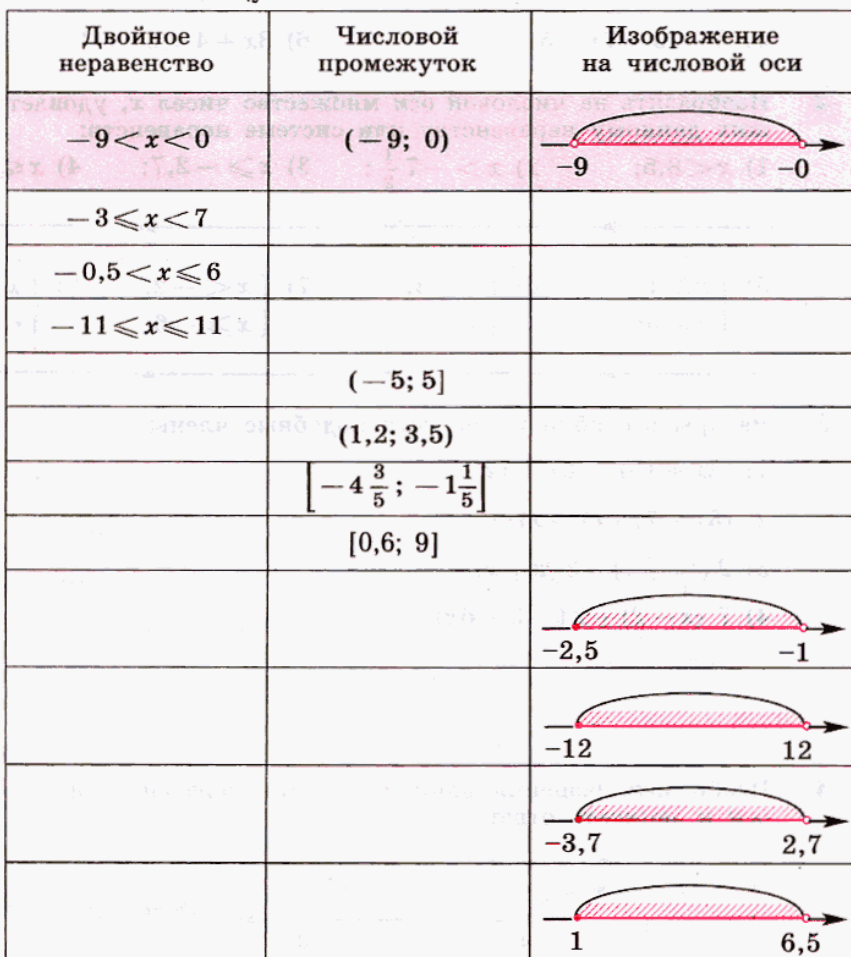 Двойное неравенство
Числовой промежуток
Изображение на числовой оси
−9 < x < 0
(−9; 0)
−9
−0
−3 ⩽ x < 7
−0,5 < x ⩽ 6
−11 ⩽ x ⩽ 11
(−5; 5]
(1,2; 3,5)
[−4 3/5; −1 1/5]
[0,6; 9]
−2,5
−1
−12
12
−3,7
2,7
1
6,5